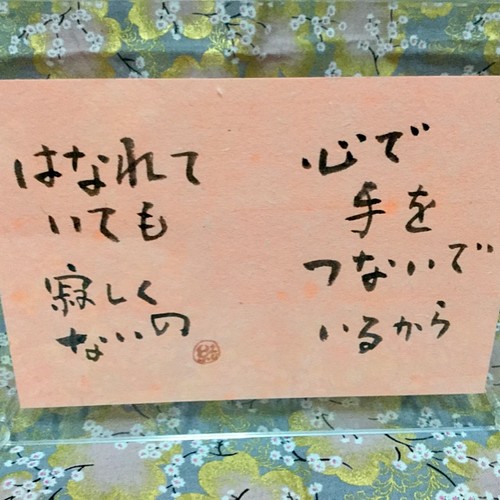 はなれて
いても
寂しく
ないの
心で
手を
つないで
いるから